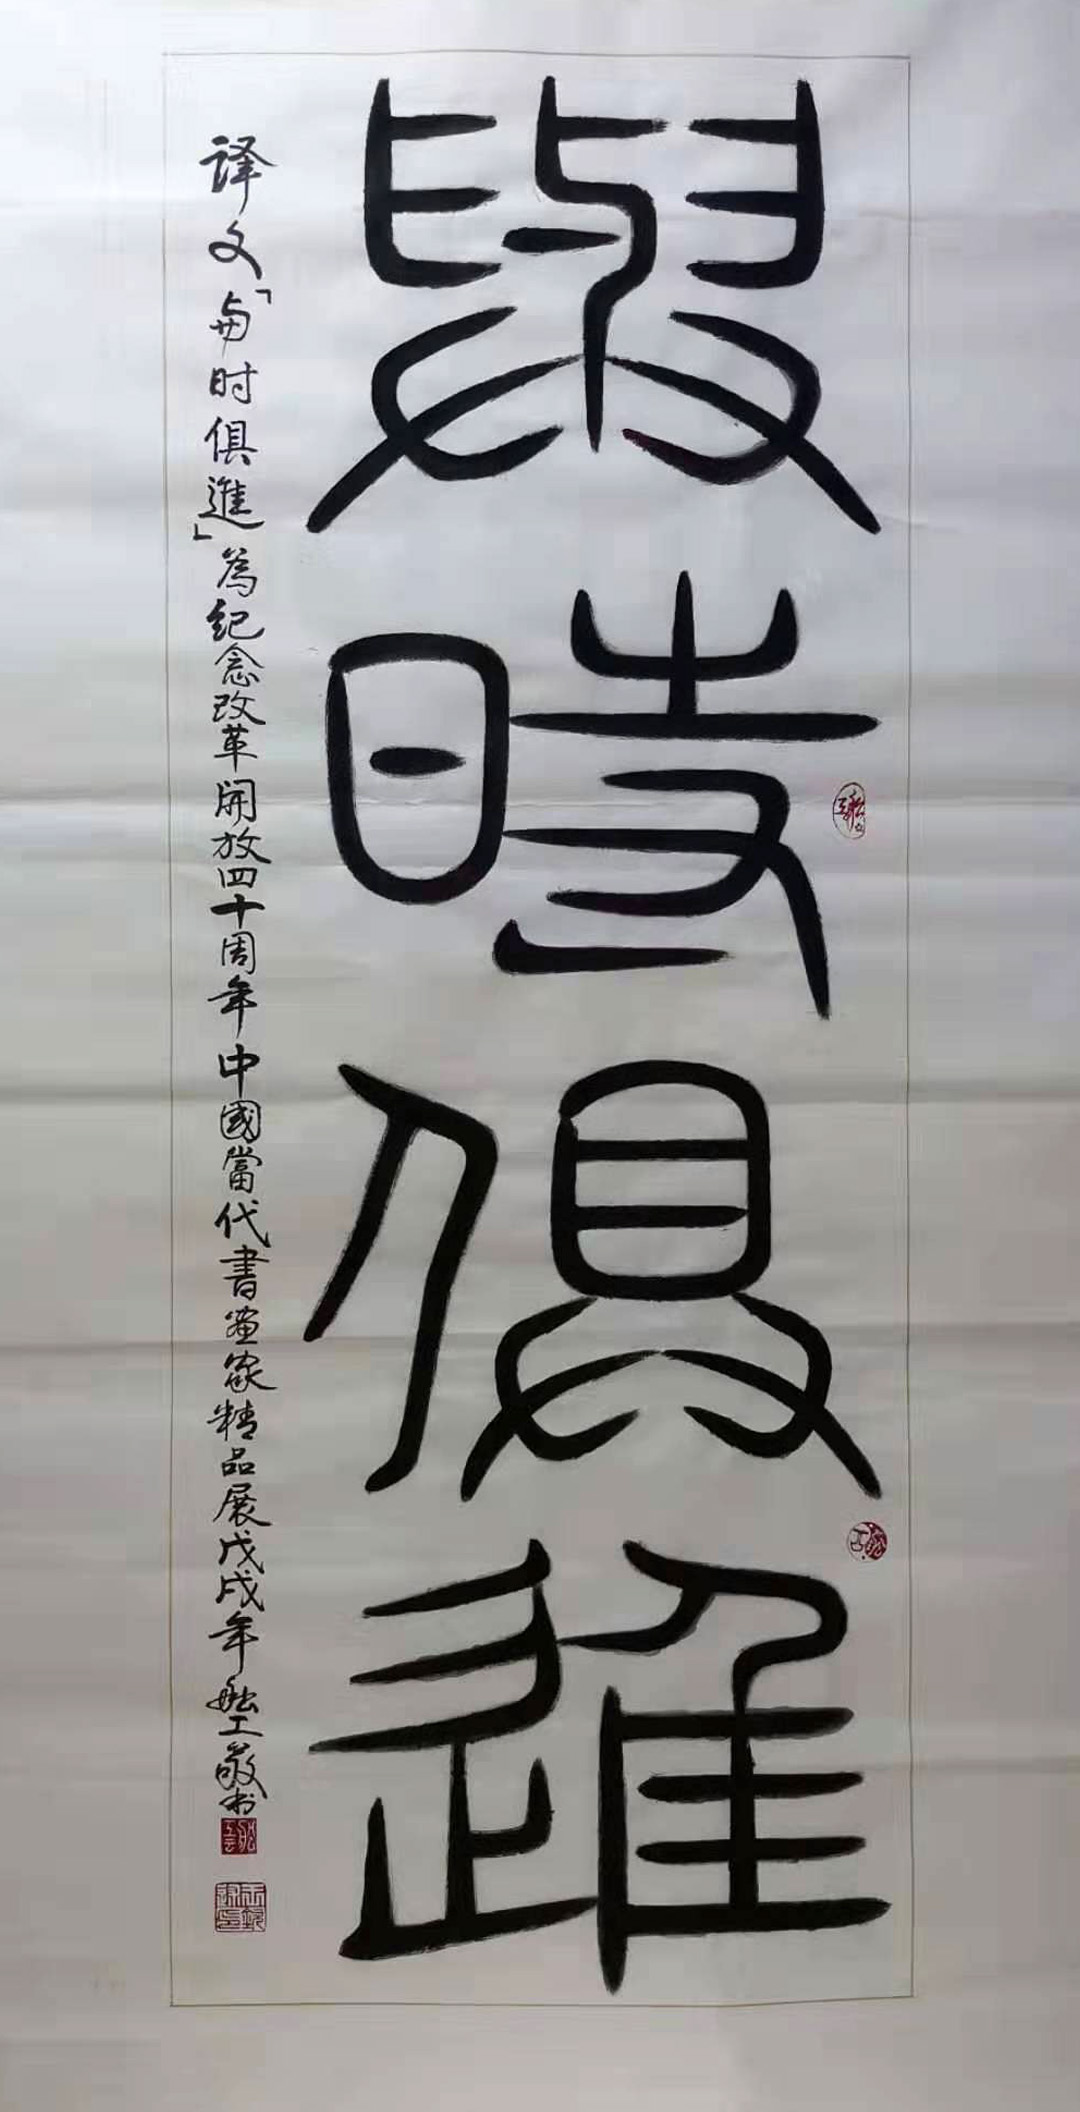 與時俱進
译文「与时俱進」為紀念改革開放四十周年中國當代書畫家精品展戊戌年船工敬书